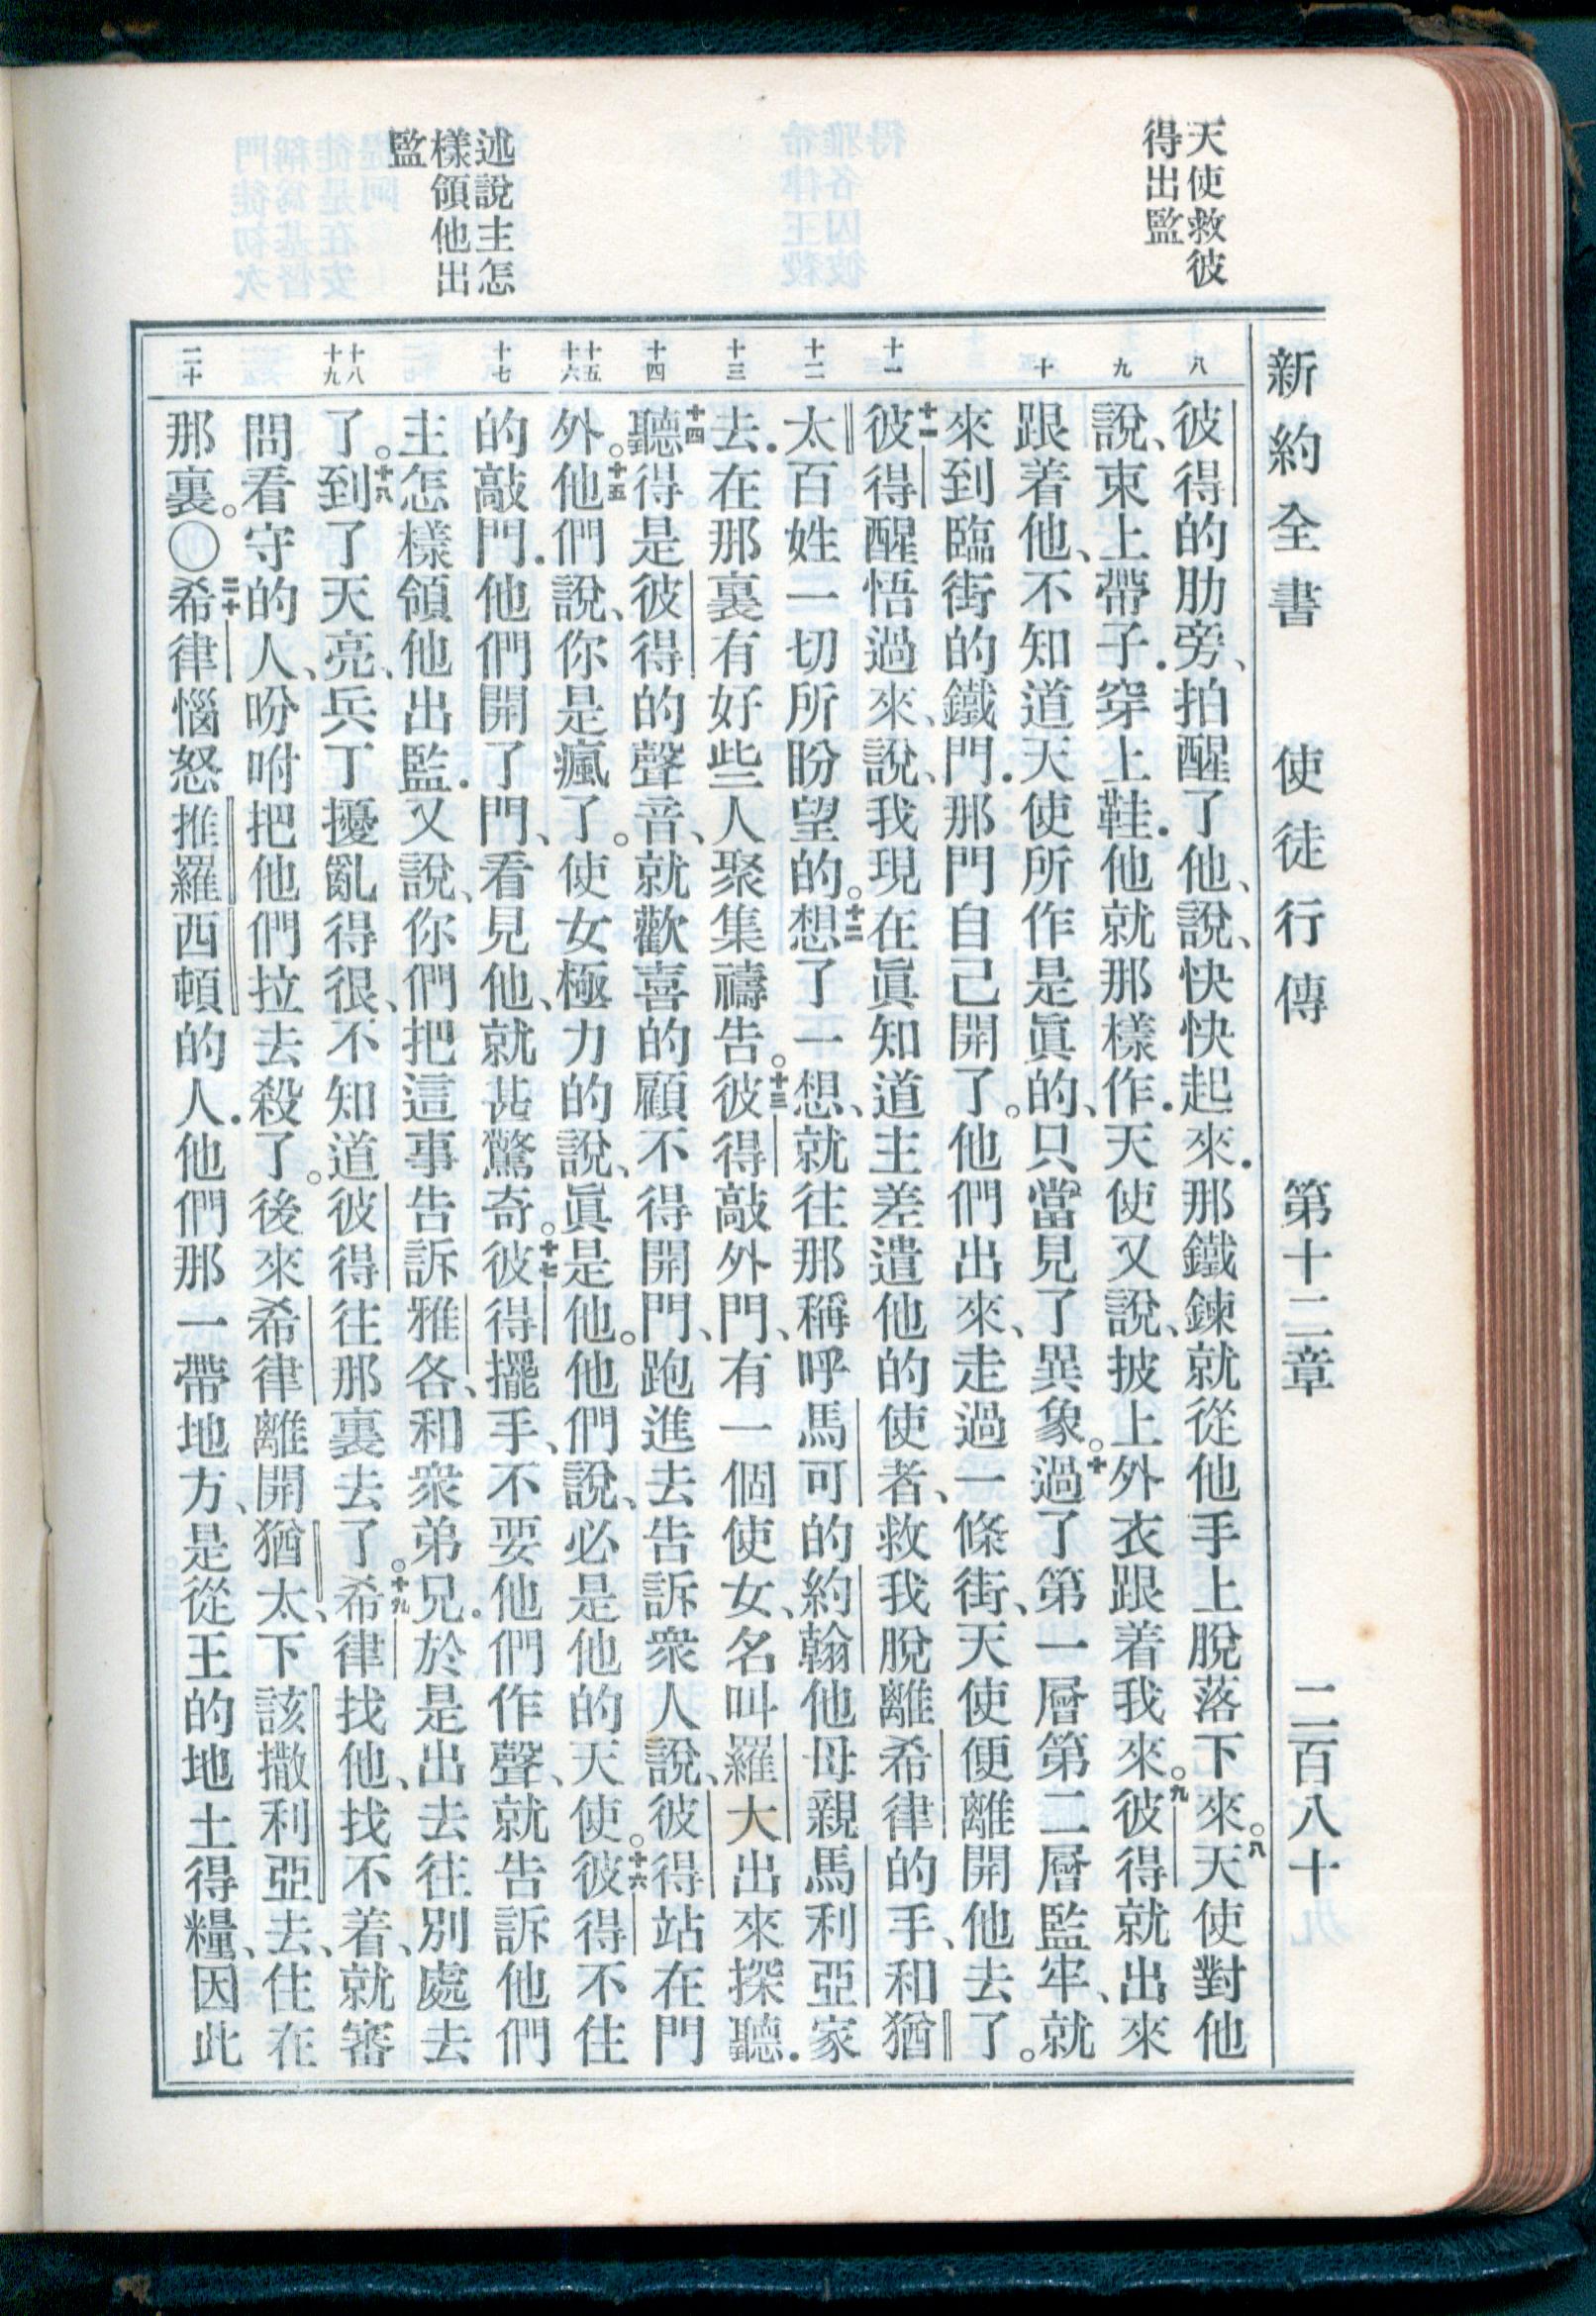 天使救彼
得出監
述說主怎
樣領他出
監
新約全書 使徒行傳 第十二章 二百八十
八
九
十
十一
十二
十三
十四
十五
十六
十七
十八
十九
二十
彼得的肋旁、拍醒了他、說、快快起來．那鐵鍊就從他手上脫落下來。八天使對他
說、束上帶子．穿上鞋．他就那樣作．天使又說、披上外衣跟着我來。九彼得就出來
跟着他、不知道天使所作是眞的、只當見了異象。十過了第一層第二層監牢、就
來到臨街的鐵門．那門自己開了。他們出來、走過一條街、天使便離開他去了。
十一彼得醒悟過來、說、我現在眞知道主差遣他的使者、救我脫離希律的手、和猶
太百姓一切所盼望的。十二想了一想、就往那稱呼馬可的約翰他母親馬利亞家
去．在那裏有好些人聚集禱告。十三彼得敲外門、有一個使女、名叫羅大出來探聽．
十四聽得是彼得的聲音、就歡喜的顧不得開門、跑進去告訴衆人說、彼得站在門
外。十五他們說、你是瘋了。使女極力的說、眞是他。他們說、必是他的天使。十六彼得不住
的敲門．他們開了門、看見他、就甚驚奇。十七彼得擺手、不要他們作聲、就告訴他們
主怎樣領他出監．又說、你們把這事告訴雅各、和衆弟兄。於是出去往別處去
了。十八到了天亮、兵丁擾亂得很、不知道彼得往那裏去了。十九希律找他、找不着、就審
問看守的人、吩咐把他們拉去殺了。後來希律離開猶太、下該撒利亞去、住在
那裏。○二十希律惱怒推羅西頓的人．他們那一帶地方、是從王的地土得糧、因此